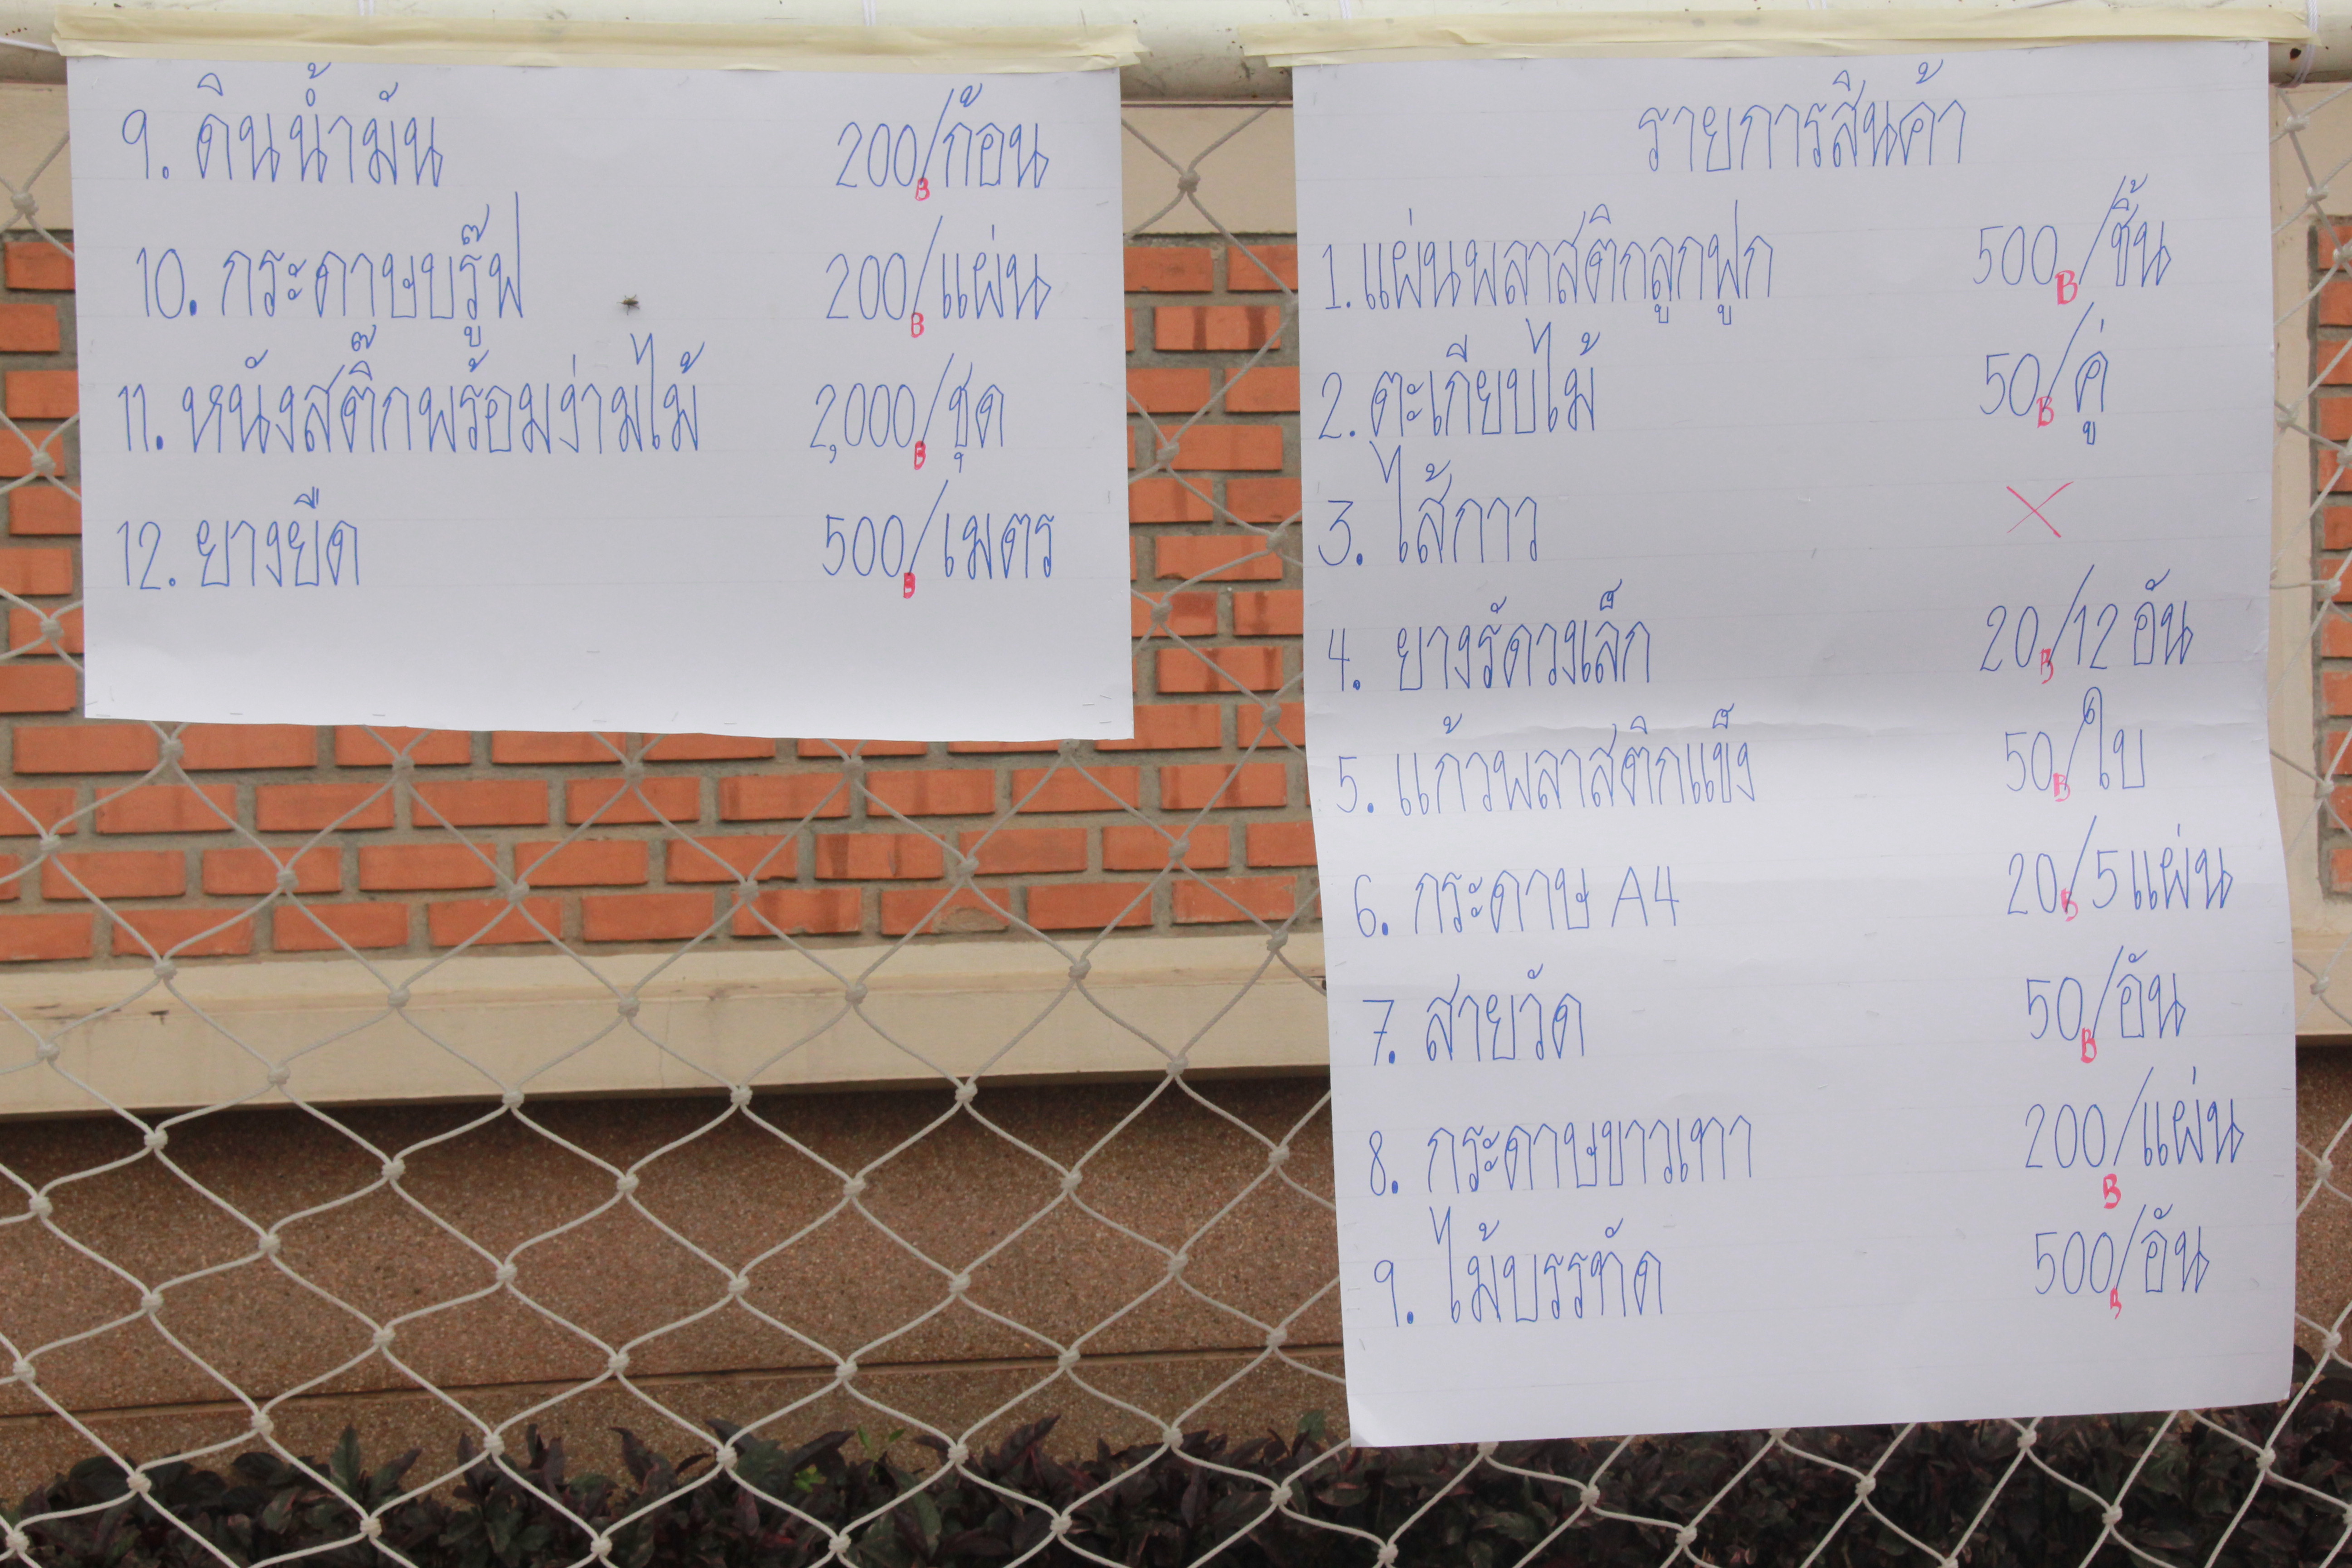 รายการสินค้า
1. แผ่นพลาสติกลูกฟูก 500 B/ชิ้น
2. ตะเกียบไม้ 50 B/คู่
3. ไส้กาว X
4. ยางรัดวงเล็ก 20 B/12 อัน
5. แก้วพลาสติกแข็ง 50 B/ใบ
6. กระดาษ A4 20 B/5 แผ่น
7. สายวัด 50 B/อัน
8. กระดาษขาวเทา 200 B/แผ่น
9. ไม้บรรทัด 500 B/อัน
9. ดินน้ำมัน 200 B/ก้อน
10. กระดาษบรู๊ฟ 200 B/แผ่น
11. หนังสติ๊กพร้อมง่ามไม้ 2,000 B/ชุด
12. ยางยืด 500 B/เมตร